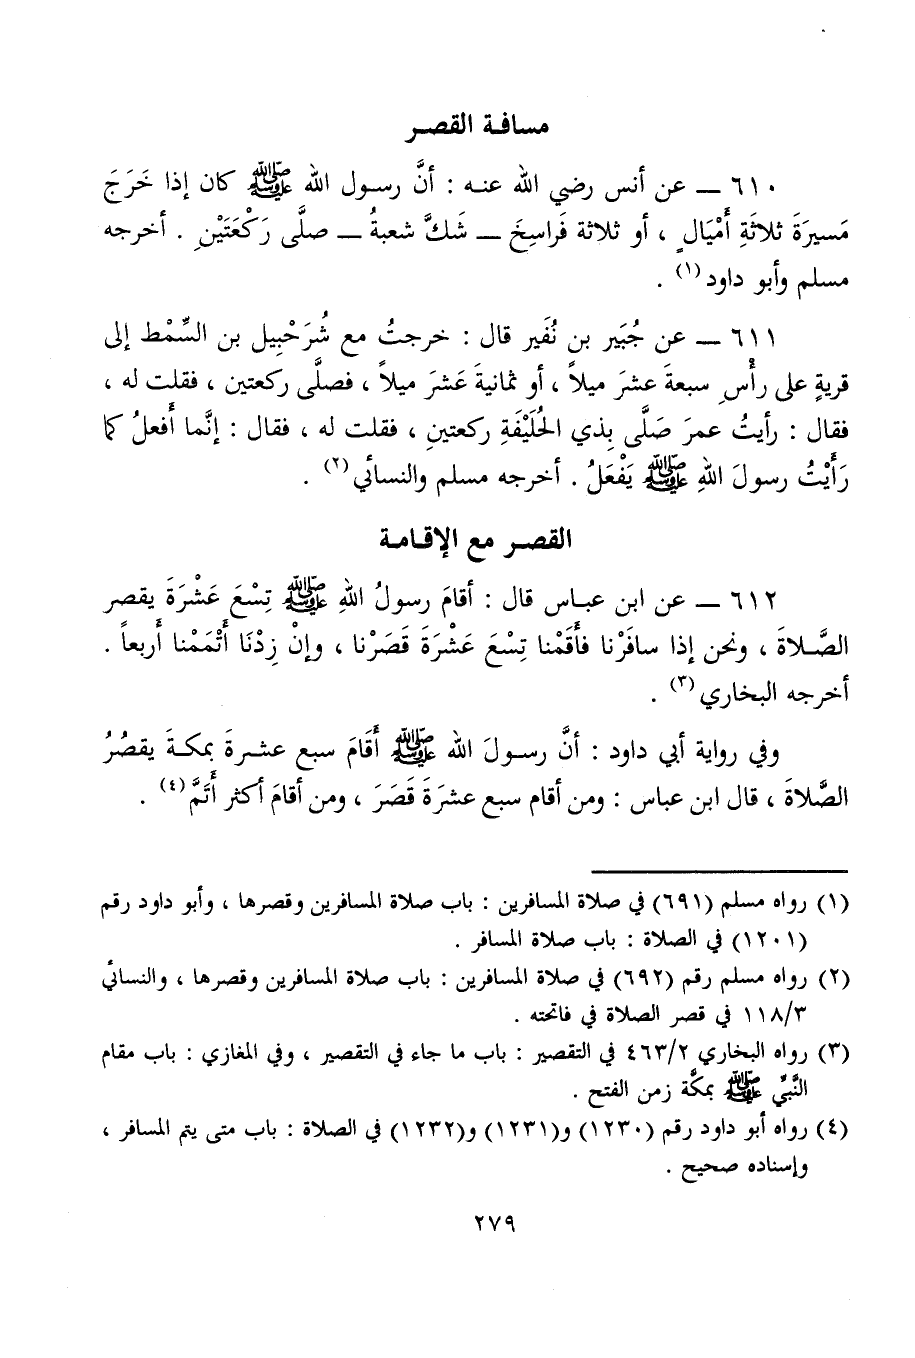 مسافة القصر
٦١٠ ــ عن أنس رضي الله عنه : أنَّ رسول الله ﷺ كان إذا خَرَجَ
مَسيرَةَ ثلاثَةِ أَمْيَالٍ ، أو ثلاثة فَراسِخَ ــ شَكَّ شعبةُ ــ صلَّى رَكْعَتَيْنِ . أخرجه
مسلم وأبو داود(١) .
٦١١ ــ عن جُبَير بن نُفَير قال : خرجتُ مع شُرَحْبِيل بن السِّمْط إلى
قريةٍ على رأْسِ سبعةَ عشرَ ميلاً ، أو ثمانيةَ عَشَرَ ميلاً ، فصلَّى ركعتين ، فقلت له ،
فقال : رأيتُ عمرَ صَلَّى بِذي الحُلَيْفَةِ ركعتينِ ، فقلت له ، فقال : إنَّما أَفعلُ كما
رَأَيْتُ رسولَ اللهِ ﷺ يَفْعَلُ . أخرجه مسلم والنسائي(٢) .
القصر مع الإقامة
٦١٢ ــ عن ابن عباس قال : أقامَ رسولُ اللهِ ﷺ تِسْعَ عَشْرَةَ يقصر
الصَّلاةَ ، ونحن إذا سافَرْنا فأَقَمْنا تِسْعَ عَشْرَةَ قَصَرْنا ، وإنْ زِدْنَا أَتْمَمْنا أَربعاً .
أخرجه البخاري(٣) .
وفي رواية أبي داود : أنَّ رسولَ الله ﷺ أَقَامَ سبع عشرةَ بمكةَ يقصُرُ
الصَّلاةَ ، قال ابن عباس : ومن أقام سبع عشرَةَ قَصَرَ ، ومن أقامَ أكثر أَتَمَّ(٤) .
(١) رواه مسلم (٦٩١) في صلاة المسافرين : باب صلاة المسافرين وقصرها ، وأبو داود رقم
(١٢٠١) في الصلاة : باب صلاة المسافر .
(٢) رواه مسلم رقم (٦٩٢) في صلاة المسافرين : باب صلاة المسافرين وقصرها ، والنسائي
١١٨/٣ في قصر الصلاة في فاتحته .
(٣) رواه البخاري ٤٦٣/٢ في التقصير : باب ما جاء في التقصير ، وفي المغازي : باب مقام
النَّبيِّ ﷺ بمكَّة زمن الفتح .
(٤) رواه أبو داود رقم (١٢٣٠) و(١٢٣١) و(١٢٣٢) في الصلاة : باب متى يتم المسافر ،
وإسناده صحيح .
٢٧٩